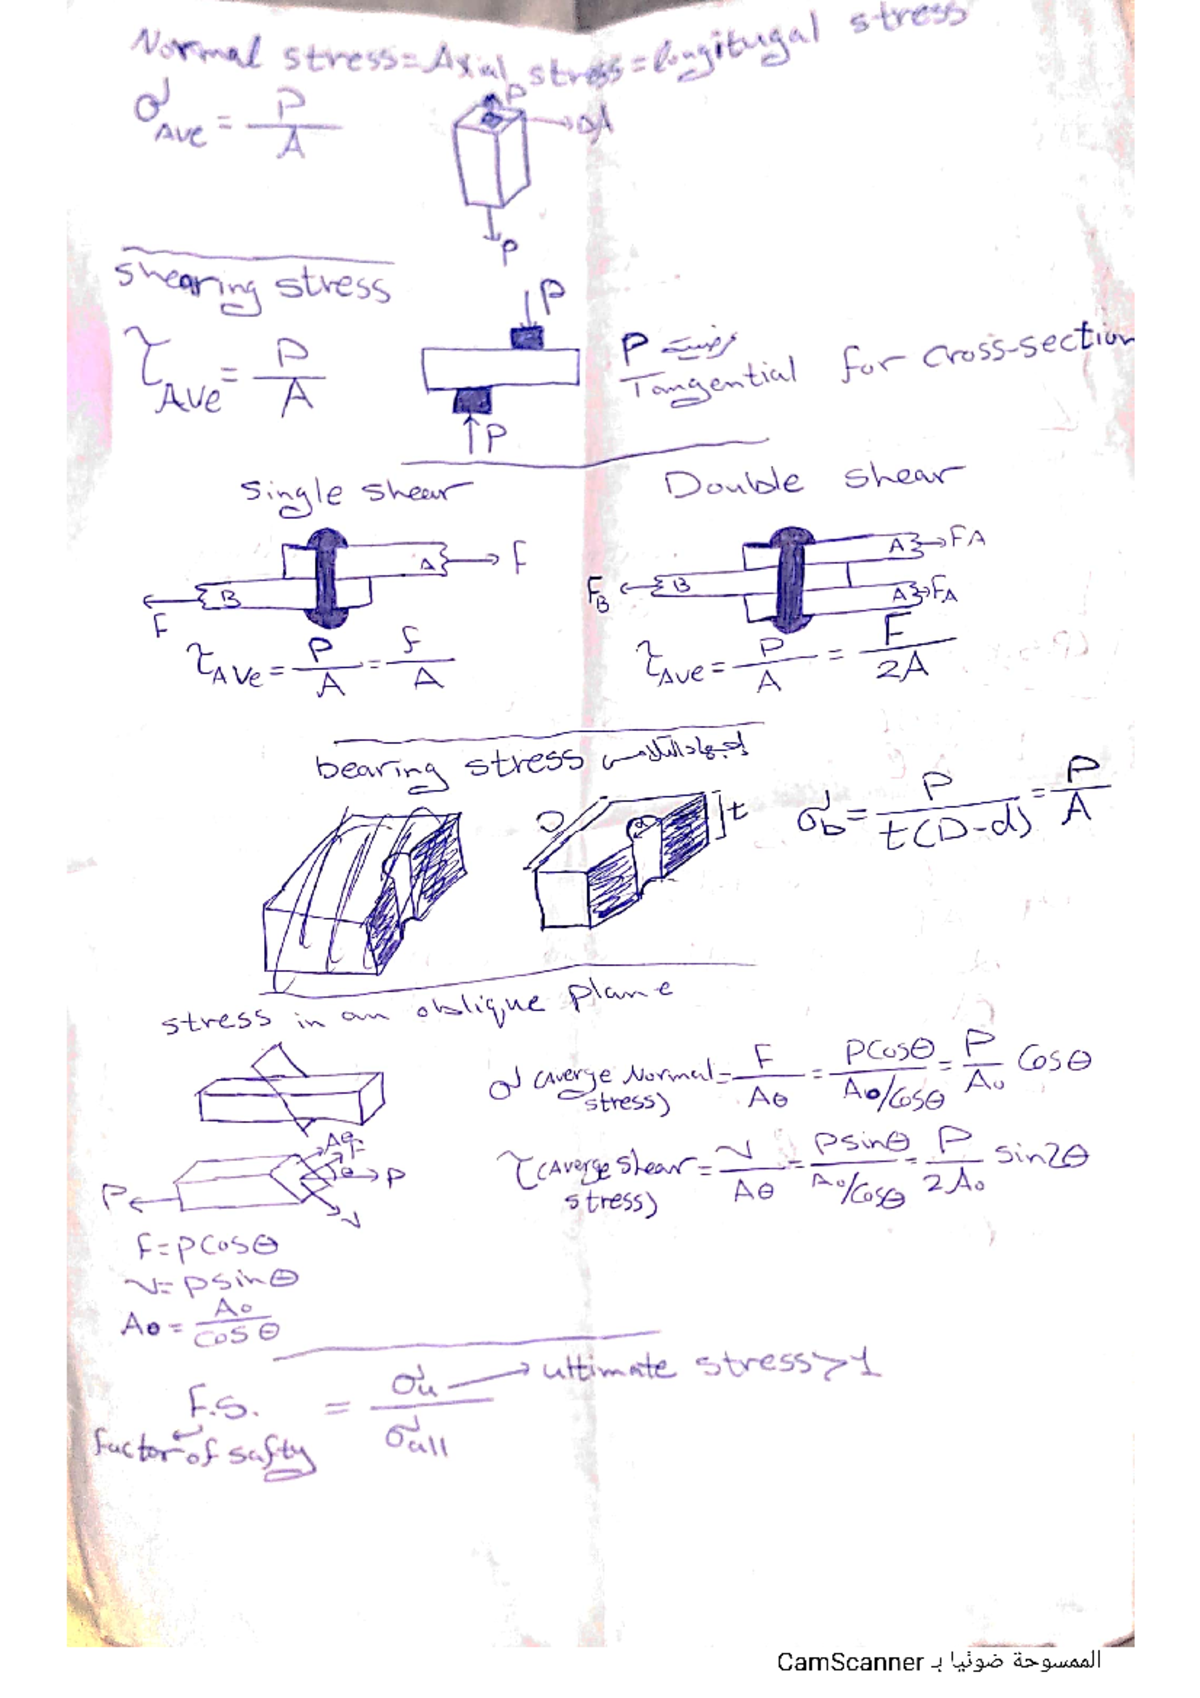 Normal stress = Axial stress = longitugal stress
σAve = P/A
P
ΔA
P
shearing stress
τAve = P/A
P
P
P
Tangential for cross-section
Single shear
Double shear
A F
B
F
FB B
A FA
A FA
τAve = P/A = F/A
τAve = P/A = F/2A
bearing stress إجهاد التلامس
D
d
t
σb = P/t(D-d) = P/A
stress in an oblique plane
σ (Averge Normal stress) = F/Aθ = Pcosθ/A0/cosθ = P/A0 cosθ
τ (Averge shear stress) = V/Aθ = Psinθ/A0/cosθ = P/2A0 sin2θ
P
P
V
F = Pcosθ
V = Psinθ
Aθ = A0/cosθ
F.S. = σu/σall → ultimate stress > 1
factor of safty
الممسوحة ضوئيا بـ CamScanner